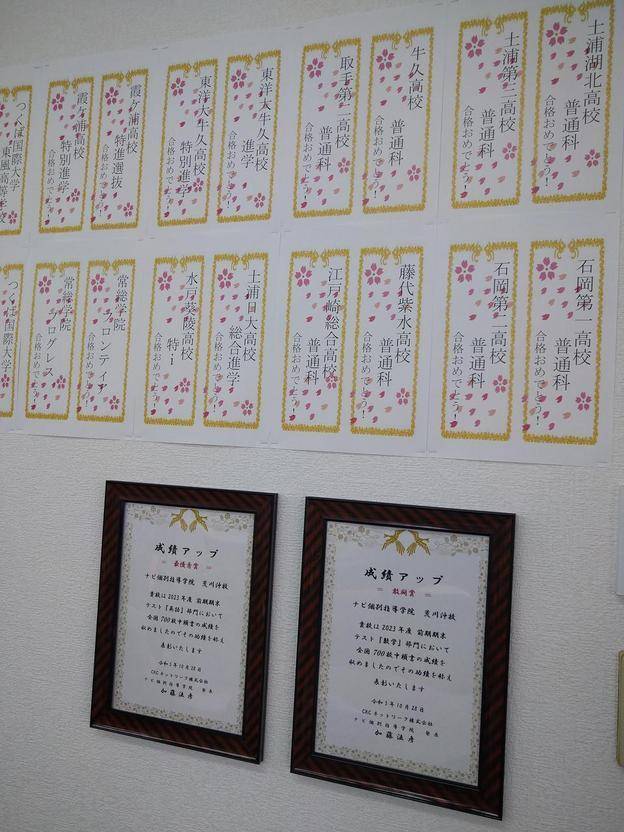 土浦湖北高校
普通科
土浦第三高校
普通科
合格おめでとう！
牛久高校
普通科
合格おめでとう！
取手第二高校
普通科
合格おめでとう！
東洋大牛久高校
進学
合格おめでとう！
東洋大牛久高校
特別進学
合格おめでとう！
霞ケ浦高校
特進選抜
合格おめでとう！
霞ケ浦高校
特別進学
合格おめでとう！
つくば国際大学
東風高等学校
石岡第一高校
普通科
合格おめでとう！
石岡第二高校
普通科
合格おめでとう！
藤代紫水高校
普通科
合格おめでとう！
江戸崎総合高校
普通科
合格おめでとう！
土浦日大高校
総合進学
合格おめでとう！
水戸葵陵高校
特-i
合格おめでとう！
常総学院
フロンティア
合格おめでとう！
常総学院
プログレス
合格おめでとう！
つくば国際大学
成績アップ
最優秀賞
ナビ個別指導学院 荒川沖校
貴校は2023年度 前期期末
テスト『英語』部門において
全国700校中頭書の成績を
収めましたのでその功績を称え
表彰いたします
令和5年10月28日
CKCネットワーク株式会社
ナビ個別指導学院
加藤法彦
成績アップ
敢闘賞
ナビ個別指導学院 荒川沖校
貴校は2023年度 前期期末
テスト『数学』部門において
全国700校中頭書の成績を
収めましたのでその功績を称え
表彰いたします
令和5年10月28日
CKCネットワーク株式会社
ナビ個別指導学院
加藤法彦